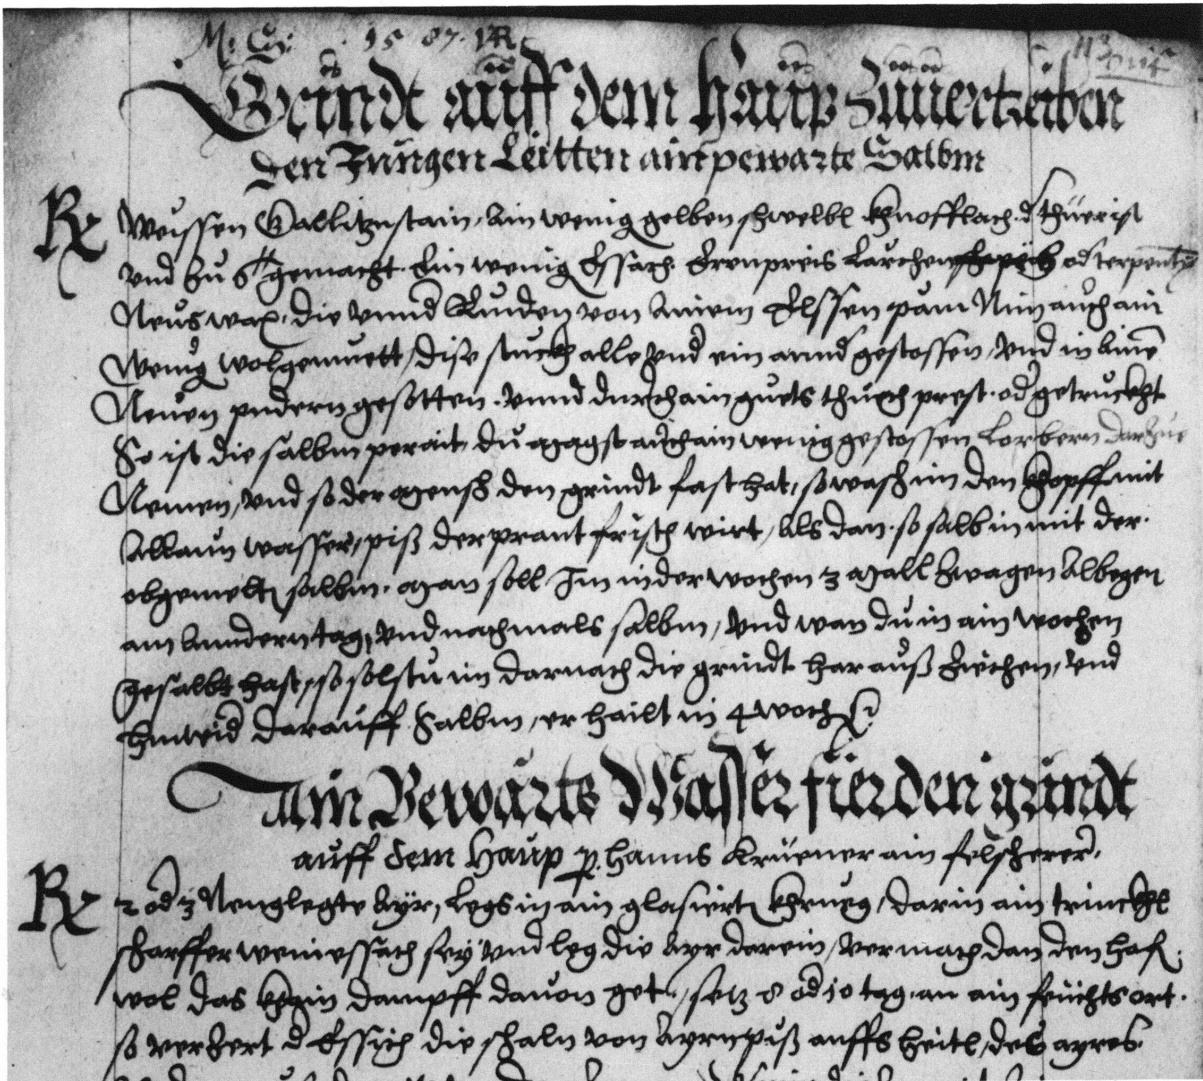 M. G. 1587.
Grindt auff dem haup zuuertreiben
den Jungen Leitten ain pewarte Salbm
Rx Weissen Gallitznstain, Ain wenig gelben shwelbl khnofflach d thüer ist
vnd zu gemacht. Ein wenig Essach Erenpreis Larchen od terpentin
Neus wax, die vnnd Rinden von ainem Elssen pam Nim auch ain
wenig wolgemuett, dise stuckh alle vnd ein annd gestossen, vnd in ainē
Neuen gesotten. vnnd durch ain guets thuch prest. od getruckht
So ist die salbm perait, du magst auch ain wenig gestossen Lorbern darzue
Nemen, vnd so der mensh den grindt fast hat, so wash im den khopff mit
Allaun wasser, piß der prant frisch wirt, Als dan. so salb in mit der.
obgemelten salbm. man soll Im in der wochen 3 mall zwagen Albegen
am Anndern tag, vnd nachmals salbm, vnd wan du in ain wochen
gesalbt hast, so solstu im darnach die grindt har auß ziechen, vnd
hinwid darauff Salbm, er hailt in 4 woch
Ain Bewarts Wasser fier den grindt
auff dem Haup p. hanns Krüener ain felsherer.
Rx 2 od 3 Neuglegte Ayr, Legs in ain glasierten khrueg, darin ain trinckhl
sharffer weinessach sey vnd leg die Ayr darein, vermach dan den haf
wol das khain dampff dauon get, setz 8 od 10 tag. an ain feichts ort.
so verzert d Essich die shaln von Ayrn piß auffs heitl, des ayres.